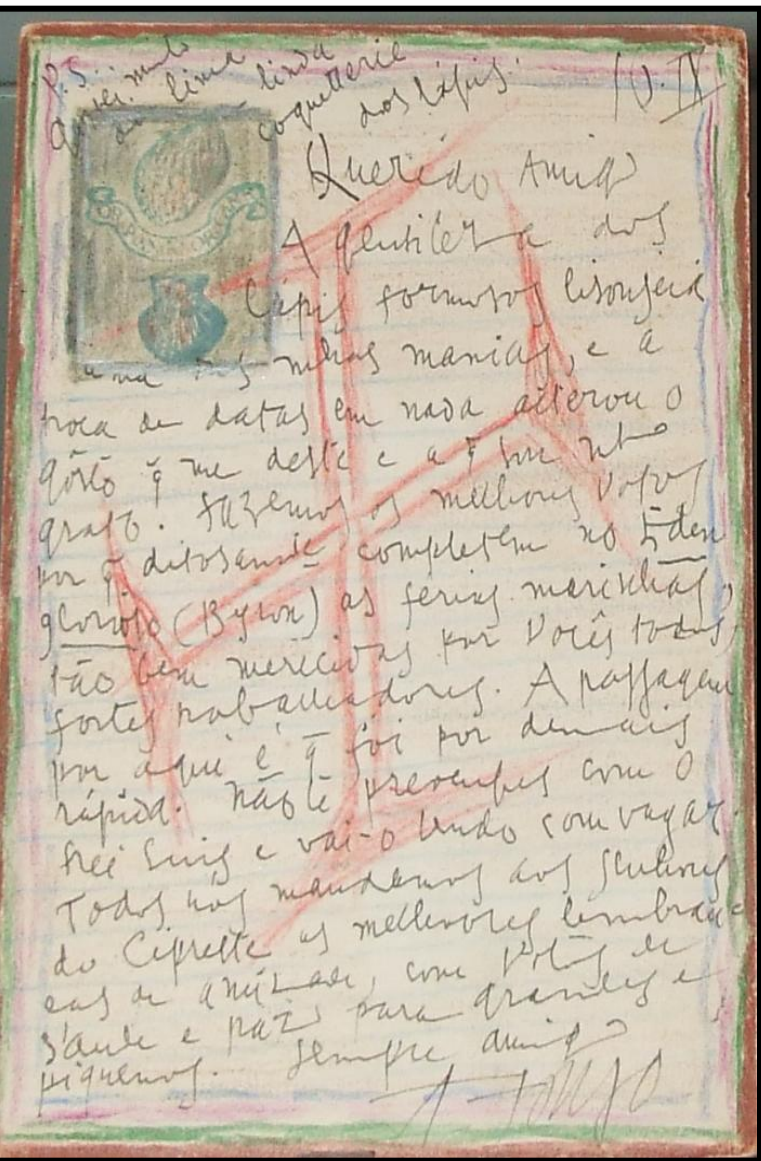 P.S.: Gostei muito
da lima linda
coquetterie
dos lápis.
10.IX
Querido Amigo
A gentileza dos
lápis formosos lisonjeia
uma das minhas manias, e a
troca de datas em nada alterou o
gôsto q̃ me deste e a q̃ sou mto
grato. Fazemos os melhores votos
por q̃ ditosamte completem no Eden
glorioso (Byron) as ferias marinhas,
tão bem merecidas por Vocês todos,
fortes trabalhadores. A passagem
por aqui é q̃ foi por demais
rápida. Não te preocupes com o
frei Luis e vai-o lendo com vagar.
Todos nós mandamos aos senhores
do Cipreste as melhores lembran-
ças de amizade, com votos de
saude e paz para grandes e
piquenos. Sempre amigo